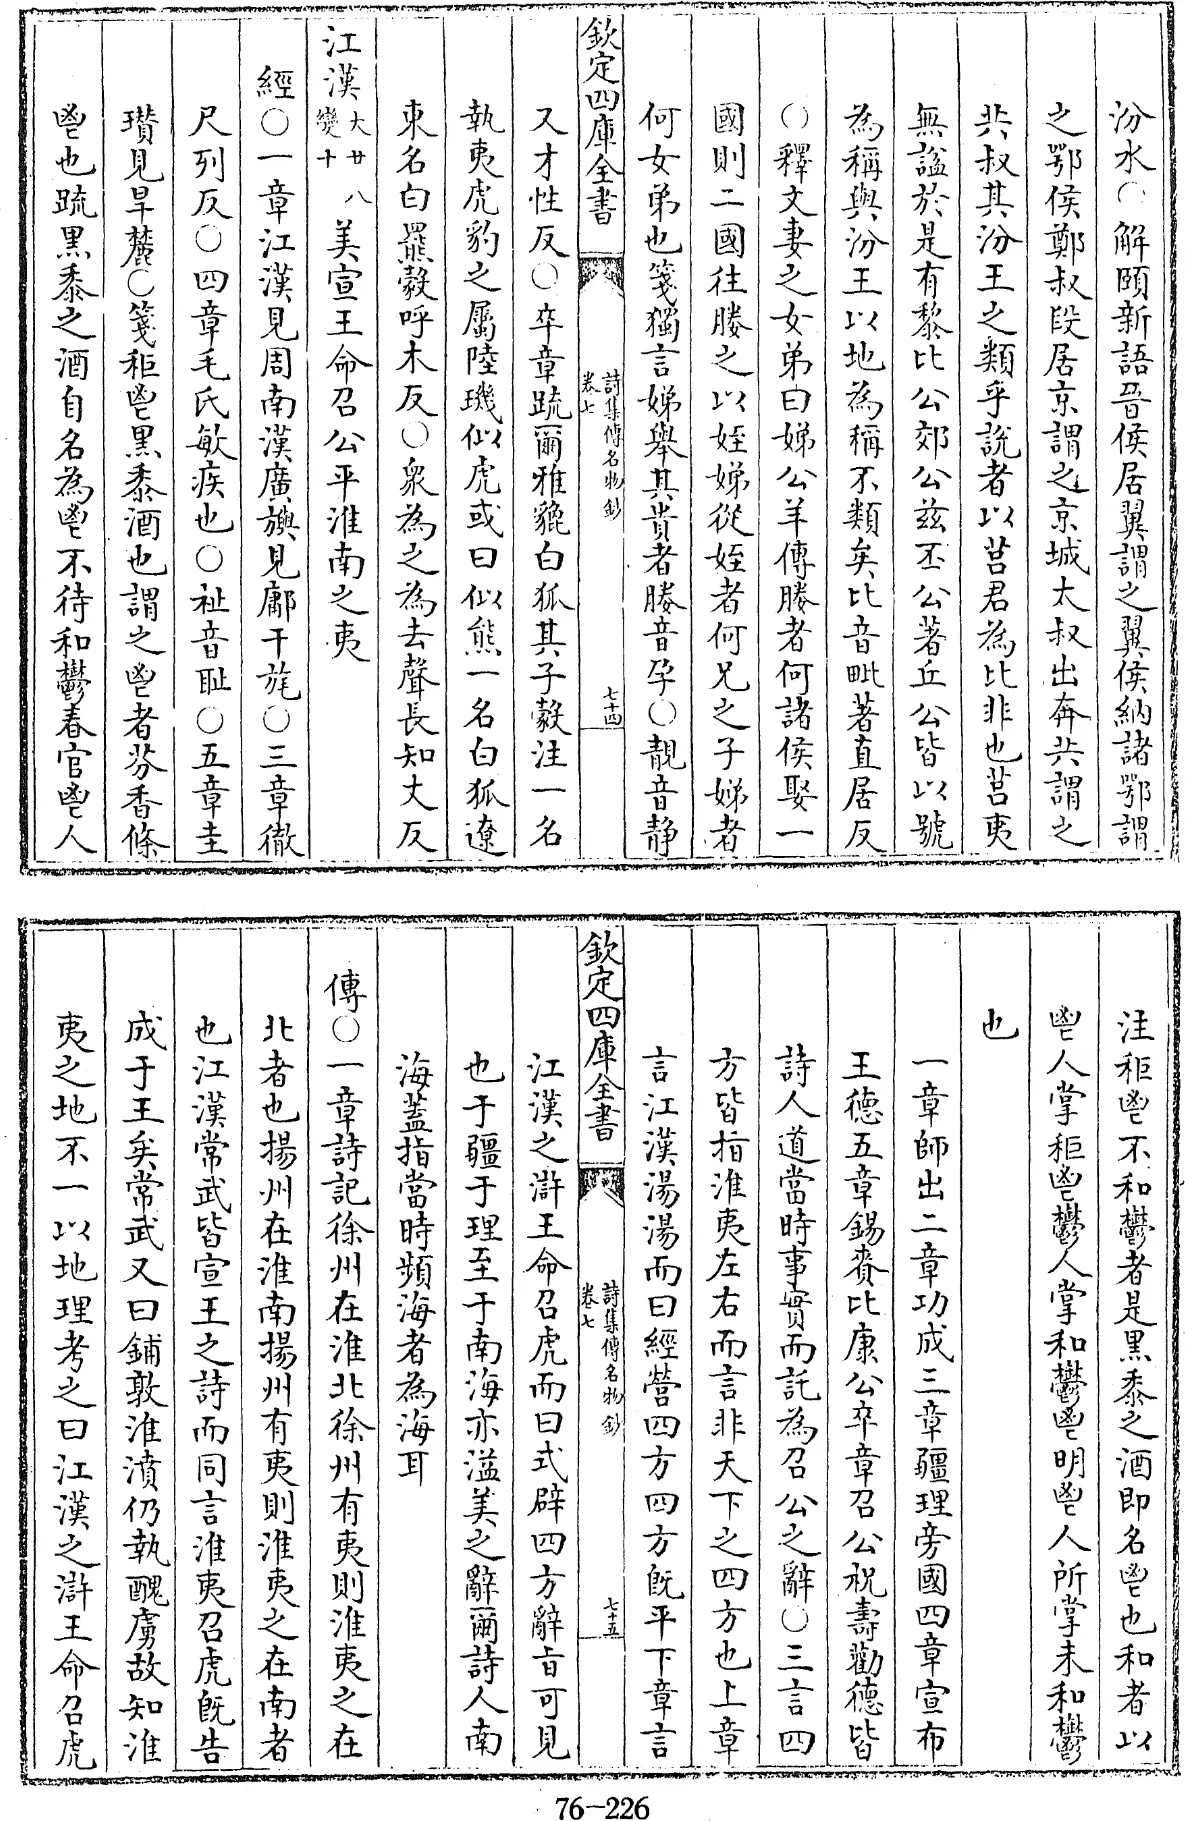 汾水○解頤新語晉侯居翼謂之翼侯納諸鄂謂
之鄂侯鄭叔段居京謂之京城太叔出奔共謂之
共叔其汾王之類乎説者以莒君為比非也莒夷
無諡於是有黎比公郊公兹丕公著丘公皆以號
為稱與汾王以地為稱不類矣比音毗著直居反
○釋文妻之女弟曰娣公羊傳媵者何諸侯娶一
國則二國往媵之以姪娣從姪者何兄之子娣者
何女弟也箋獨言娣舉其貴者媵音孕○靚音静
欽定四庫全書
詩集傳名物鈔
卷七
七十四
又才性反○卒章疏爾雅貔白狐其子豰注一名
執夷虎豹之屬陸璣似虎或曰似熊一名白狐遼
東名白羆豰呼木反○衆為之為去聲長知丈反
江漢大廿八
變十
美宣王命召公平淮南之夷
經○一章江漢見周南漢廣旟見鄘干旄○三章徹
尺列反○四章毛氏敏疾也○祉音耻○五章圭
瓚見旱麓○箋秬鬯黑黍酒也謂之鬯者芬香條
鬯也疏黑黍之酒自名為鬯不待和鬱春官鬯人
注秬鬯不和鬱者是黑黍之酒即名鬯也和者以
鬯人掌秬鬯鬱人掌和鬱鬯明鬯人所掌未和鬱
也
一章師出二章功成三章疆理旁國四章宣布
王德五章錫賚比康公卒章召公祝壽勸德皆
詩人道當時事實而託為召公之辭○三言四
方皆指淮夷左右而言非天下之四方也上章
言江漢湯湯而曰經營四方四方既平下章言
欽定四庫全書
詩集傳名物鈔
卷七
七十五
江漢之滸王命召虎而曰式辟四方辭旨可見
也于疆于理至于南海亦溢美之辭爾詩人南
海蓋指當時頻海者為海耳
傳○一章詩記徐州在淮北徐州有夷則淮夷之在
北者也揚州在淮南揚州有夷則淮夷之在南者
也江漢常武皆宣王之詩而同言淮夷召虎既告
成于王矣常武又曰鋪敦淮濆仍執醜虜故知淮
夷之地不一以地理考之曰江漢之滸王命召虎
76-226